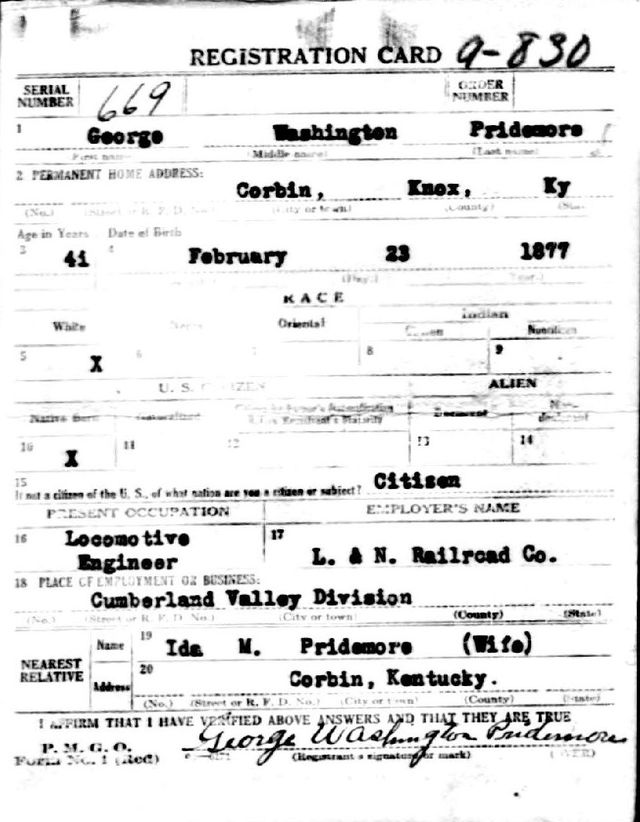 REGISTRATION CARD 9-830
SERIAL NUMBER 669 ORDER NUMBER
1 George Washington Pridemore
First name (Middle name) (Last name)
2 PERMANENT HOME ADDRESS:
Corbin, Knox, Ky
(No.) (Street or R. F. D. No.) (City or town) (County) (State)
Age in Years Date of Birth
3 41 4 February 23 1877
(Day.)
RACE
White Oriental Indian
Citizen Noncitizen
5 X 6 7 8 9
U. S. CITIZEN ALIEN
Native Born Naturalized
10 X 11 12 13 14
15
If not a citizen of the U. S., of what nation are you a citizen or subject? Citisen
PRESENT OCCUPATION EMPLOYER'S NAME
16 Locomotive Engineer 17 L. & N. Railroad Co.
18 PLACE OF EMPLOYMENT OR BUSINESS:
Cumberland Valley Division
(No.) (Street or R. F. D. No.) (City or town) (County) (State)
NEAREST RELATIVE Name 19 Ida M. Pridemore (Wife)
Address 20 Corbin, Kentucky.
(No.) (Street or R. F. D. No.) (City or town) (County) (State)
I AFFIRM THAT I HAVE VERIFIED ABOVE ANSWERS AND THAT THEY ARE TRUE
P. M. G. O.
Form No. 1 (Red) George Washington Pridemore
(Registrant's signature or mark) (OVER)